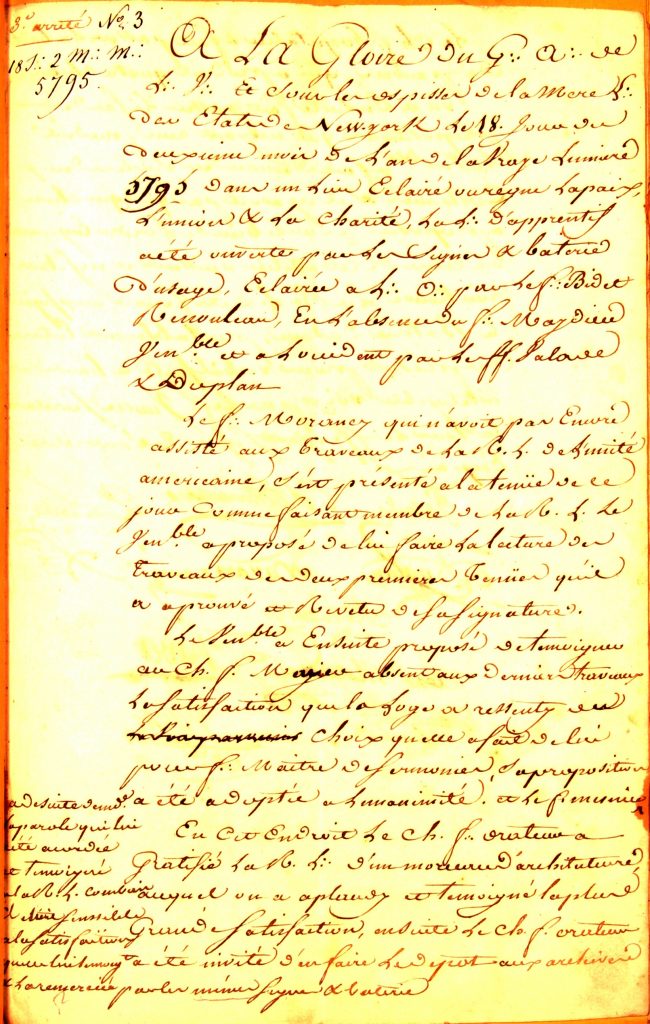 3.e arrêté No. 3
18 J.: 2 m.: m.:
5795.
A La Gloire du G.: A.: de
L.: V.: Et sous les espisses de la Mere L.:
des Etats de New-york Le 18. Jour du
deuxieme mois de L'an de la Vraye Lumiere
5795 dans un Lieu Eclairé ou regne La paix,
L'union & La Charité, La L.: d'apprentif
a été ouverte par Les Signes & baterie
d'usage, Eclairée a L.: O.: par Le f.: Bidet
Renouleau, En L'absence du f.:
Ven.ble et a L'occident par Les ff.
& Duplan
Le f.: qui n'avoit pas Encore
assisté aux Travaux de La R. L. de L'unité
americaine, s'est présenté a la tenüe de ce
jour Comme faisant membre de La R. L. Le
Ven.ble a proposé de lui faire La Lecture des
Travaux des deux premieres Tenües qu'il
a aprouvé et Revetu de sa signature.
Le Ven.ble a Ensuite proposé de temoigner
au Ch. f. absent aux derniers travaux
La Satisfaction que la Loge a ressenty du
choix qu'elle a fait de lui
pour f.: Maitre de Ceremonies, Sa proposition
a été adoptée a L'unanimité. et Le f.
la parole qui lui
été accordée
et temoigné
a la R. L. combien
il étoit sensible
a la satisfaction
& La remercié par les mêmes signe & baterie
En Cet Endroit Le Ch. f.: orateur a
Gratifié La R. L.: d'un morceau d'architecture
auquel on a aplaudy et temoigné la plus
Grande Satisfaction, ensuite Le Ch. f. orateur
a été invité d'en faire Le depot aux archives